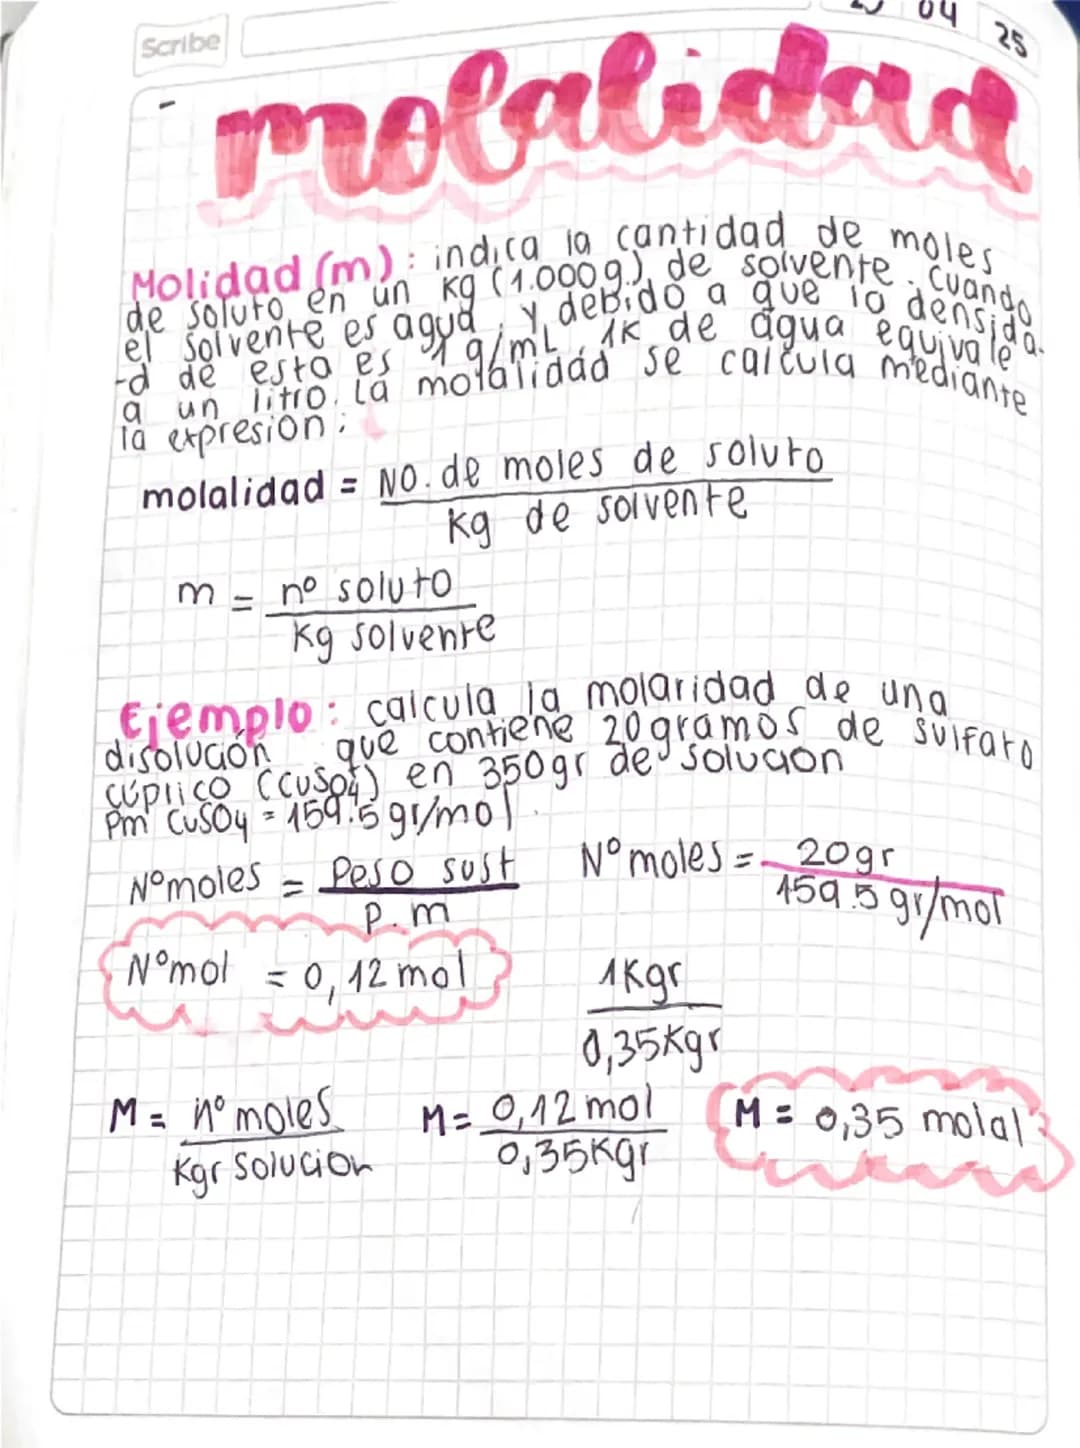 04 25
Scribe
molalidad
Molidad (m): indica la cantidad de moles
de soluto en un kg (1.000g), de solvente. Cuando
el solvente es agua, y debido a que la densida-
-d de esta es 1 g/mL, 1K de agua equivale
a un litro. La molalidad se calcula mediante
la expresion:
molalidad = NO. de moles de soluto
Kg de solvente
m = nº soluto
Kg solvente
Ejemplo: calcula la molaridad de una
disolución que contiene 20gramos de sulfato
cúplico (CuSO4) en 350gr de solucion
Pm CuSO4 = 159.5 gr/mol.
Nºmoles = Peso sust
P.m
Nº moles = 20gr
159.5 gr/mol
Nºmol = 0,12 mol
1Kgr
0,35Kgr
M = nº moles
Kgr Solucion
M = 0,12 mol
0,35Kgr
M = 0,35 molal